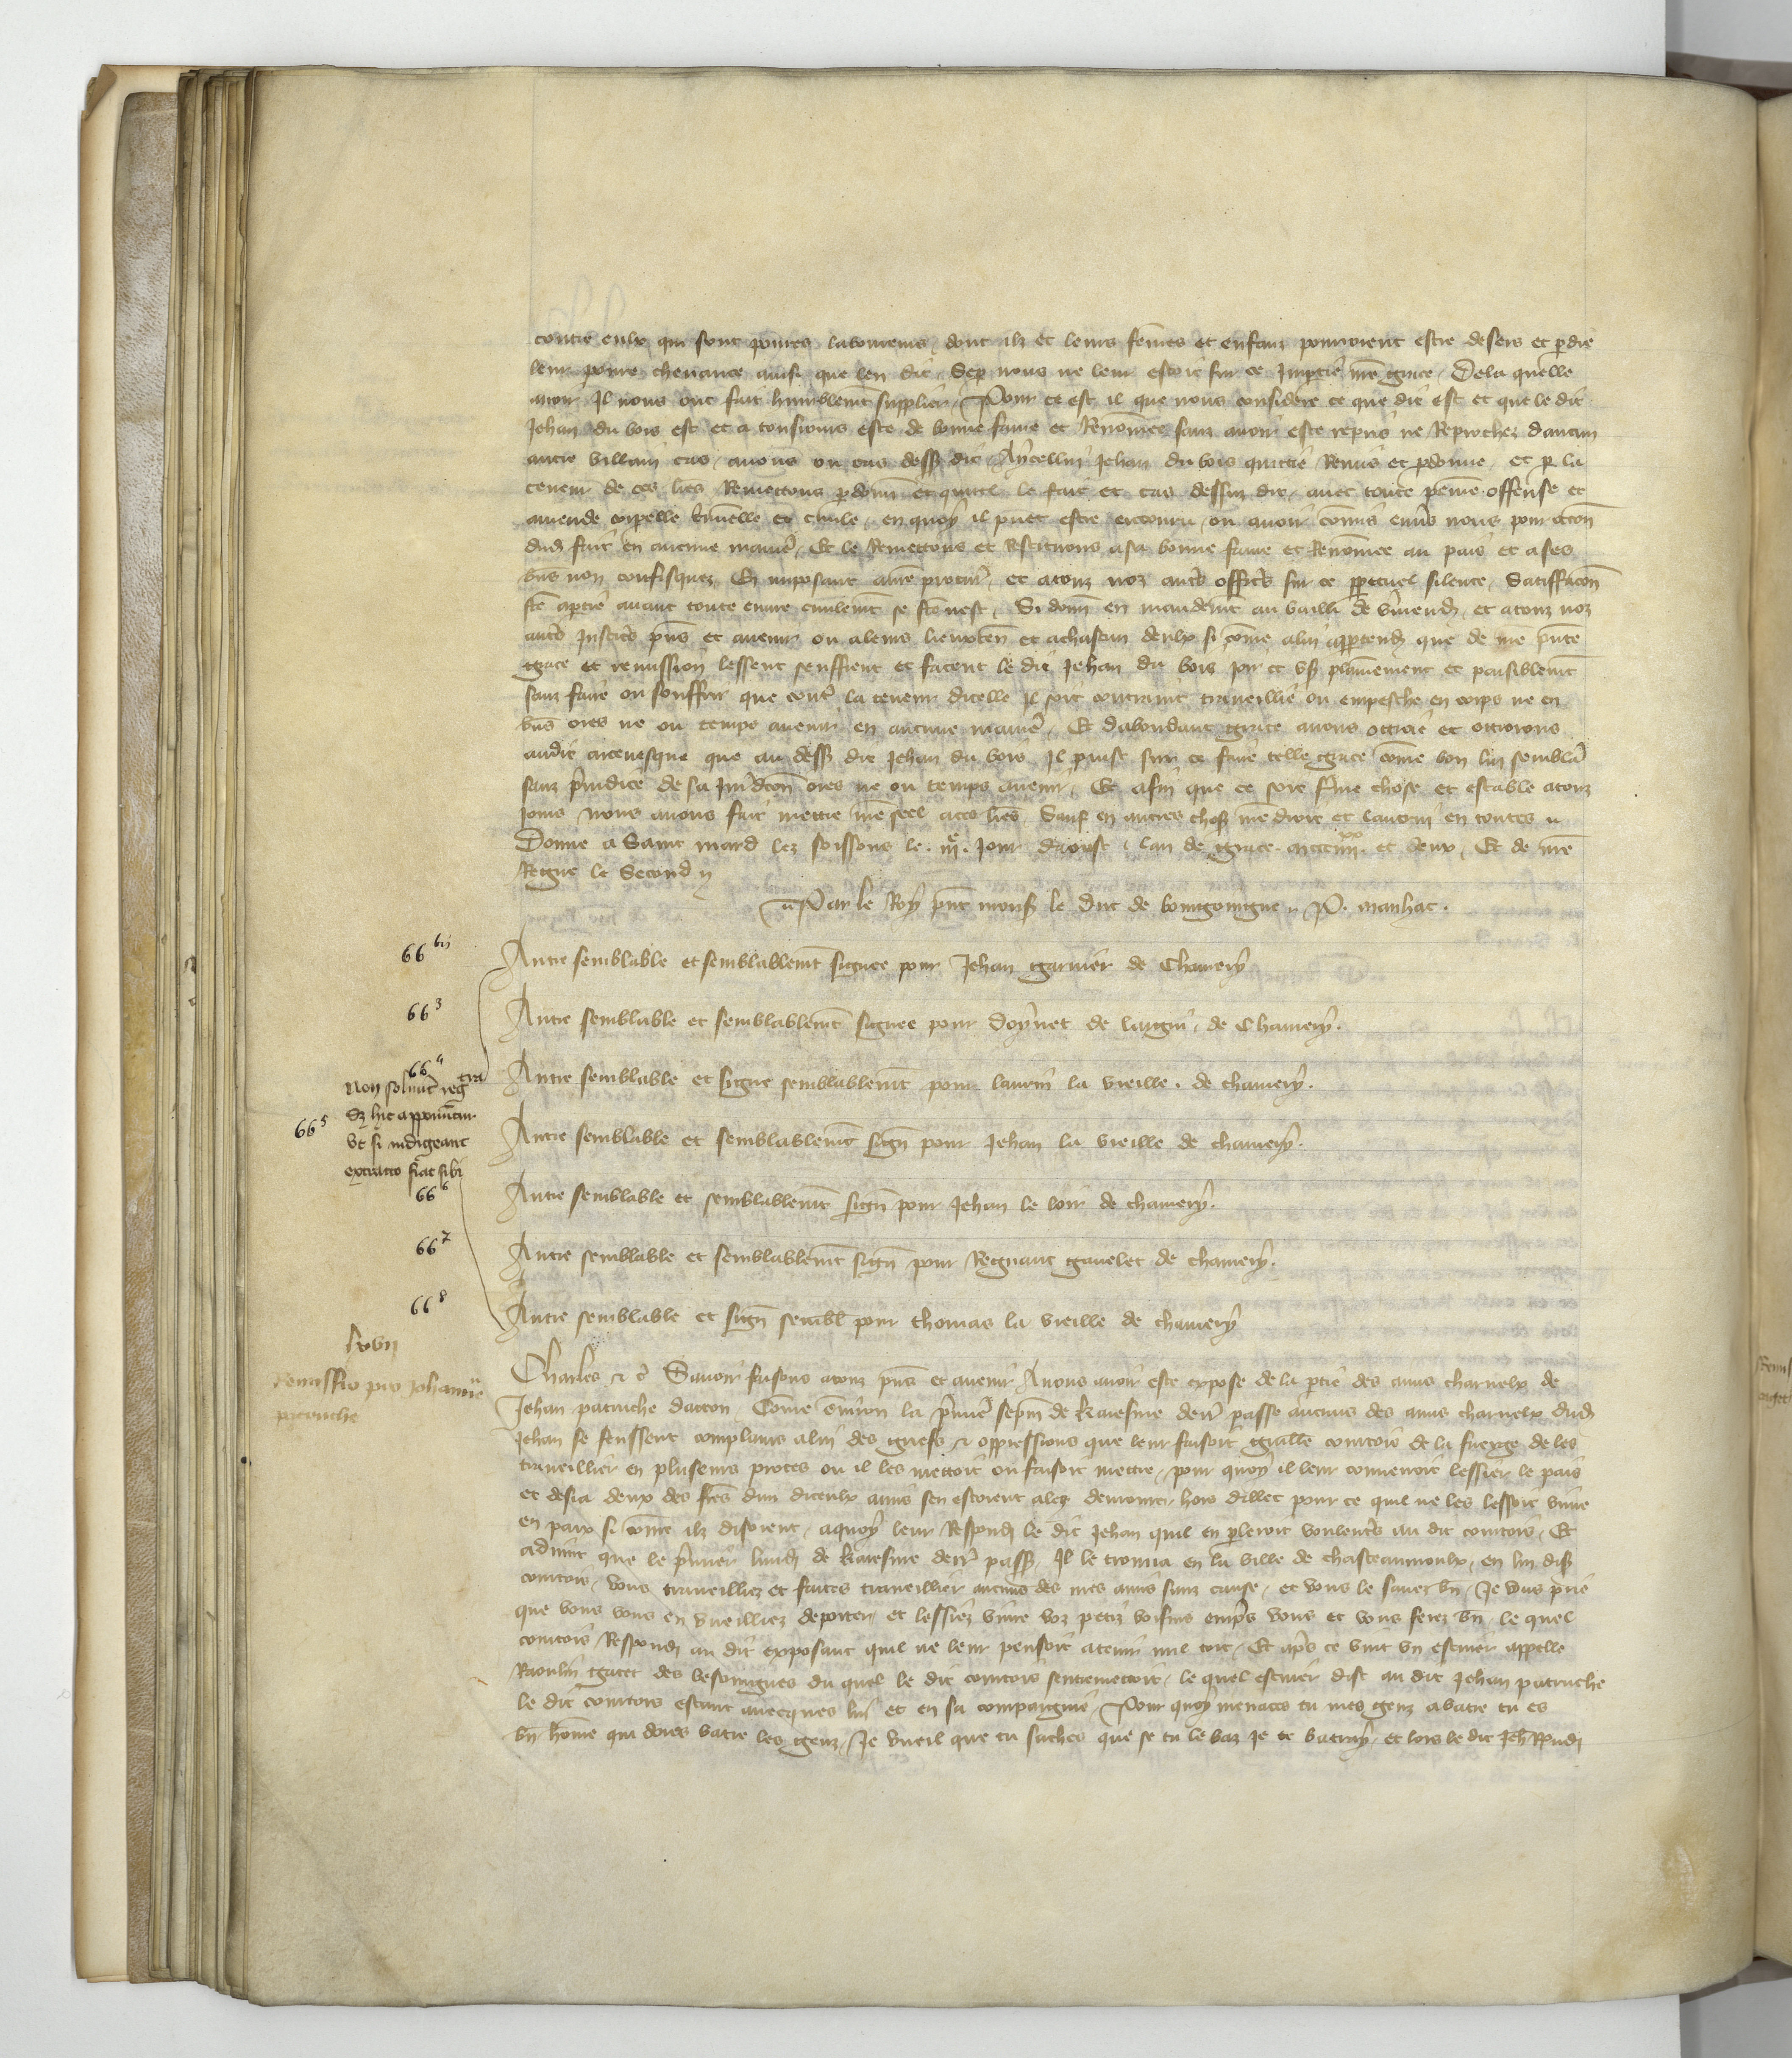 contre eulx qui sont povres laboureurs, dont ilz et leurs fēmes et enfanz pourroient estre desers et pdre
leur povre chevance ainsi que len dit. Se p nous ne leur estoit sur ce Imptie nre grace. Dela quelle
avoir Il nous ont fait humblemt supplier. Pour ce est il que nous considere ce que dit est et que le dit
Jehan du bois est et a tousiours este de bonne fame et Renōmee sanz avoir este repris ne Reprochez daucun
autre villain cas. avons ou cas dess dit Aycellui Jehan du bois quittie Remis et pdonne. et p la
teneur de ces lres Remettons pdonn et quitt le fait et cas dessus dit, avec toute peine offense et
amende corpelle crimelle et civile, en quoy il puet estre encouru, ou avoir cōmis envs nous pour occon
dud fait en aucune manie. Et le Remettons et Restituons a sa bonne fame et Renōmee au pais et a ses
bns non confisquez. En imposant a nre procur, et a touz noz autrs officrs sur ce ppetuel silence. Satiffacon
fte aptie avant toute euvre civilemt se fte nest. Si donn en mandemt au bailli de vmend, et a touz noz
autrs Justicrs pns et avenir ou a leurs lieuxten et a chascun deulx si cōme a lui apptend que de nre pnte
grace et remission lessent seuffrent et facent le dit Jehan du bois joir et us plainement et paisiblemt
sanz faire ou souffrir que contr la teneur dicelle Il soit contraint traveillie ou empesche en corps ne en
bns ores ne ou temps avenir en aucune manie. Et dabondant grace avons ottroie et ottroions
audit arcevesque que au dess dit Jehan du bois Il puist sur ce faire telle grace cōme bon lui semblā
sanz preiudice de sa Juridcon ores ne ou temps avenir. Et afin que ce soit ferme chose et estable a touz
jours Nous avons fait mettre nre seel a ces lres. Sauf en autres chos nre droit et lautrui en toutes
Donne a Saint mard lez soissons le. IIIe. Jour daoust lan de grace. mccciiiixx et deux. Et de nre
Regne le Second
Par le Roy pnt mons le duc de bourgoingne. P. manhac.
66 bis
Autre semblable et semblablemt signee pour Jehan garnier de Chamery
66 3
Autre semblable et semblablemt signee pour Doynet de largni, de Chamery.
66 4
Autre semblable et signe semblablemt pour laurin la vieille. de chamery.
Non solvunt regtra
Sz hic apponuntur
ut si indigeant
extractio fiat sibi
66 5
Autre semblable et semblablemt sign pour Jehan la vieille de chamery.
66 6
Autre semblable et semblablemt sign pour Jehan le loir de chamery.
66 7
Autre semblable et semblablemt sign pour Regnaut gavelet de chamery.
66 8
Autre semblable et sign sembl pour thomas la vieille de chamery
lxvii
Remissio pro Johanne
patruche
Charles & c Savoir faisons a touz pns et avenir A nous avoir este expose de la ptie des amis charnelx de
Jehan patruche dacton. Cōme environ la pmie sepm de karesme derr passe aucuns des amis charnelx dud
Jehan se feussent complains a lui des griefs et oppressions que leur faisoit contois de la de les
traveillier en pluseurs proces ou il les mettoit ou faisoit mettre, pour quoy il leur convenoit lessier le pais
et desia deux des fres dun diceulx amis sen estoient alez demourer hors dillec pour ce quil ne les lessoit vivre
en paix si cōme ilz disoient, a quoy leur Respond le dit Jehan quil en pleroit voulents au dit contois. Et
advint que le pmier lundi de karesme derr pass. Il le trouva en la ville de chasteaumoulx, en lui dis
contois, vous traveilliez et faites traveillier aucuns des mes amis sanz cause, et vous le savez bn, Je vous prie
que vous vous en vueilliez deporter, et lessiez vivre voz petiz voisins empres vous et vous ferez bn, le quel
contois Respond au dit exposant quil ne leur pensoit a tenir nul tort, Et apres ce vint un escuier appelle
Raoulin gatet des besoingnes du quel le dit contois sentremettoit, le quel escuier dist au dit Jehan patruche
le dit contois estant avecques lui et en sa compaignie. Pour quoy menaces tu mes genz a batre tu es
bn hōme qui doies batre les genz, Je vueil que tu saches que se tu le baz je te batray, et lors le dit Jeh Rpnd